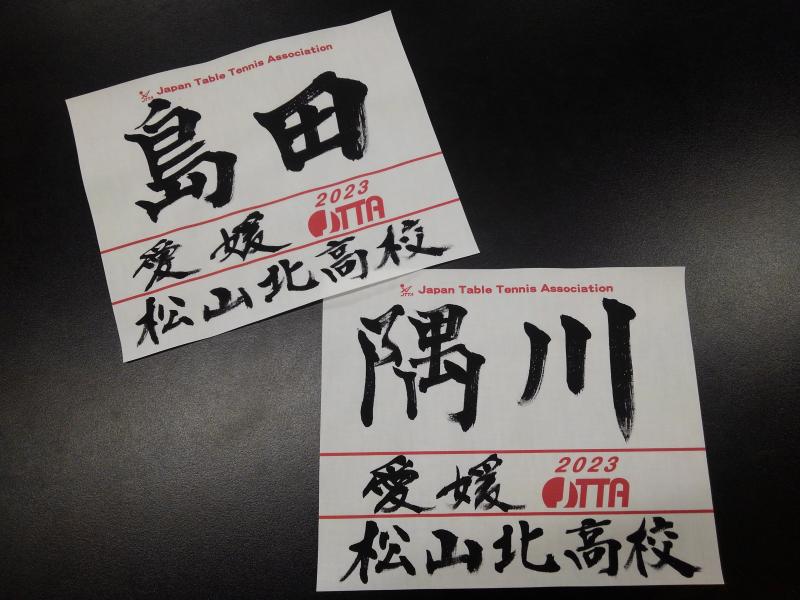 JTTA Japan Table Tennis Association
島田
2023
愛媛 JTTA
松山北高校
JTTA Japan Table Tennis Association
隅川
2023
愛媛 JTTA
松山北高校